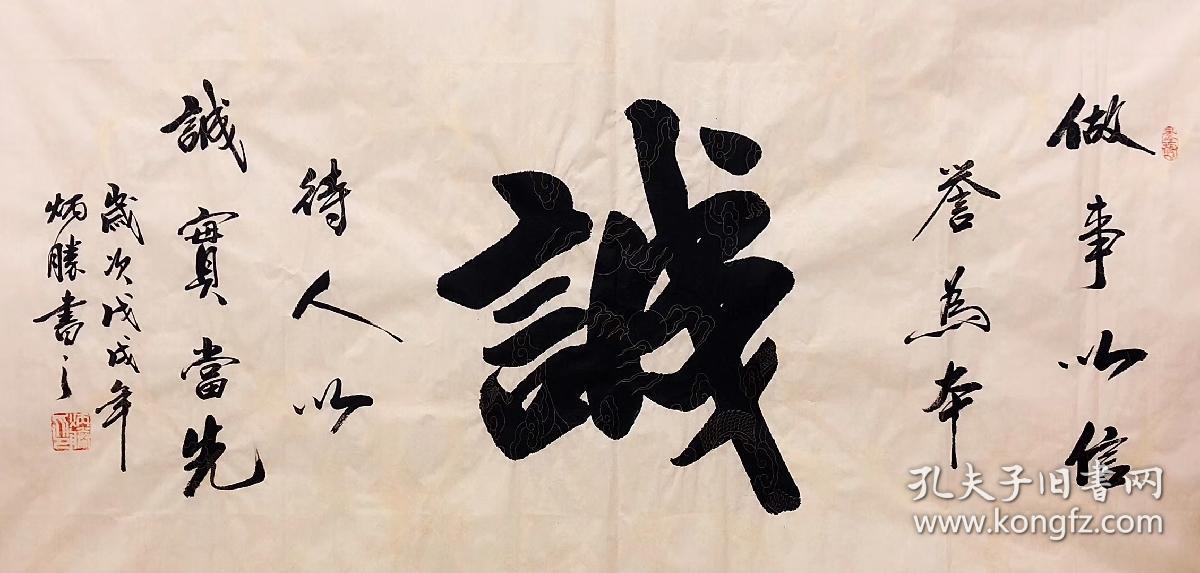 做事以信
譽為本
誠
待人以
誠實當先
歲次戊戌年
炳勝書之
孔夫子旧书网
www.kongfz.com